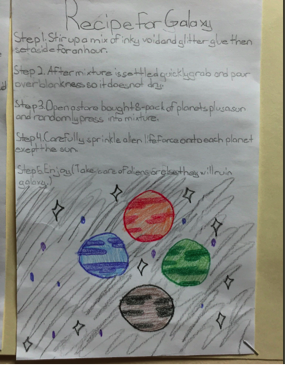 Recipe For Galaxy
Step 1. Stir up a mix of inky void and glitter glue then
set aside for an hour.
Step 2. After mixture is settled quickly grab and pour
over blankness so it does not dry.
Step 3. Open a store bought 8-pack of planets plus a sun
and randomly press into mixture.
Step 4. Carefully sprinkle alien life force onto each planet
exept the sun.
Step 5. Enjoy! Take care of aliens or else they will ruin
galaxy!